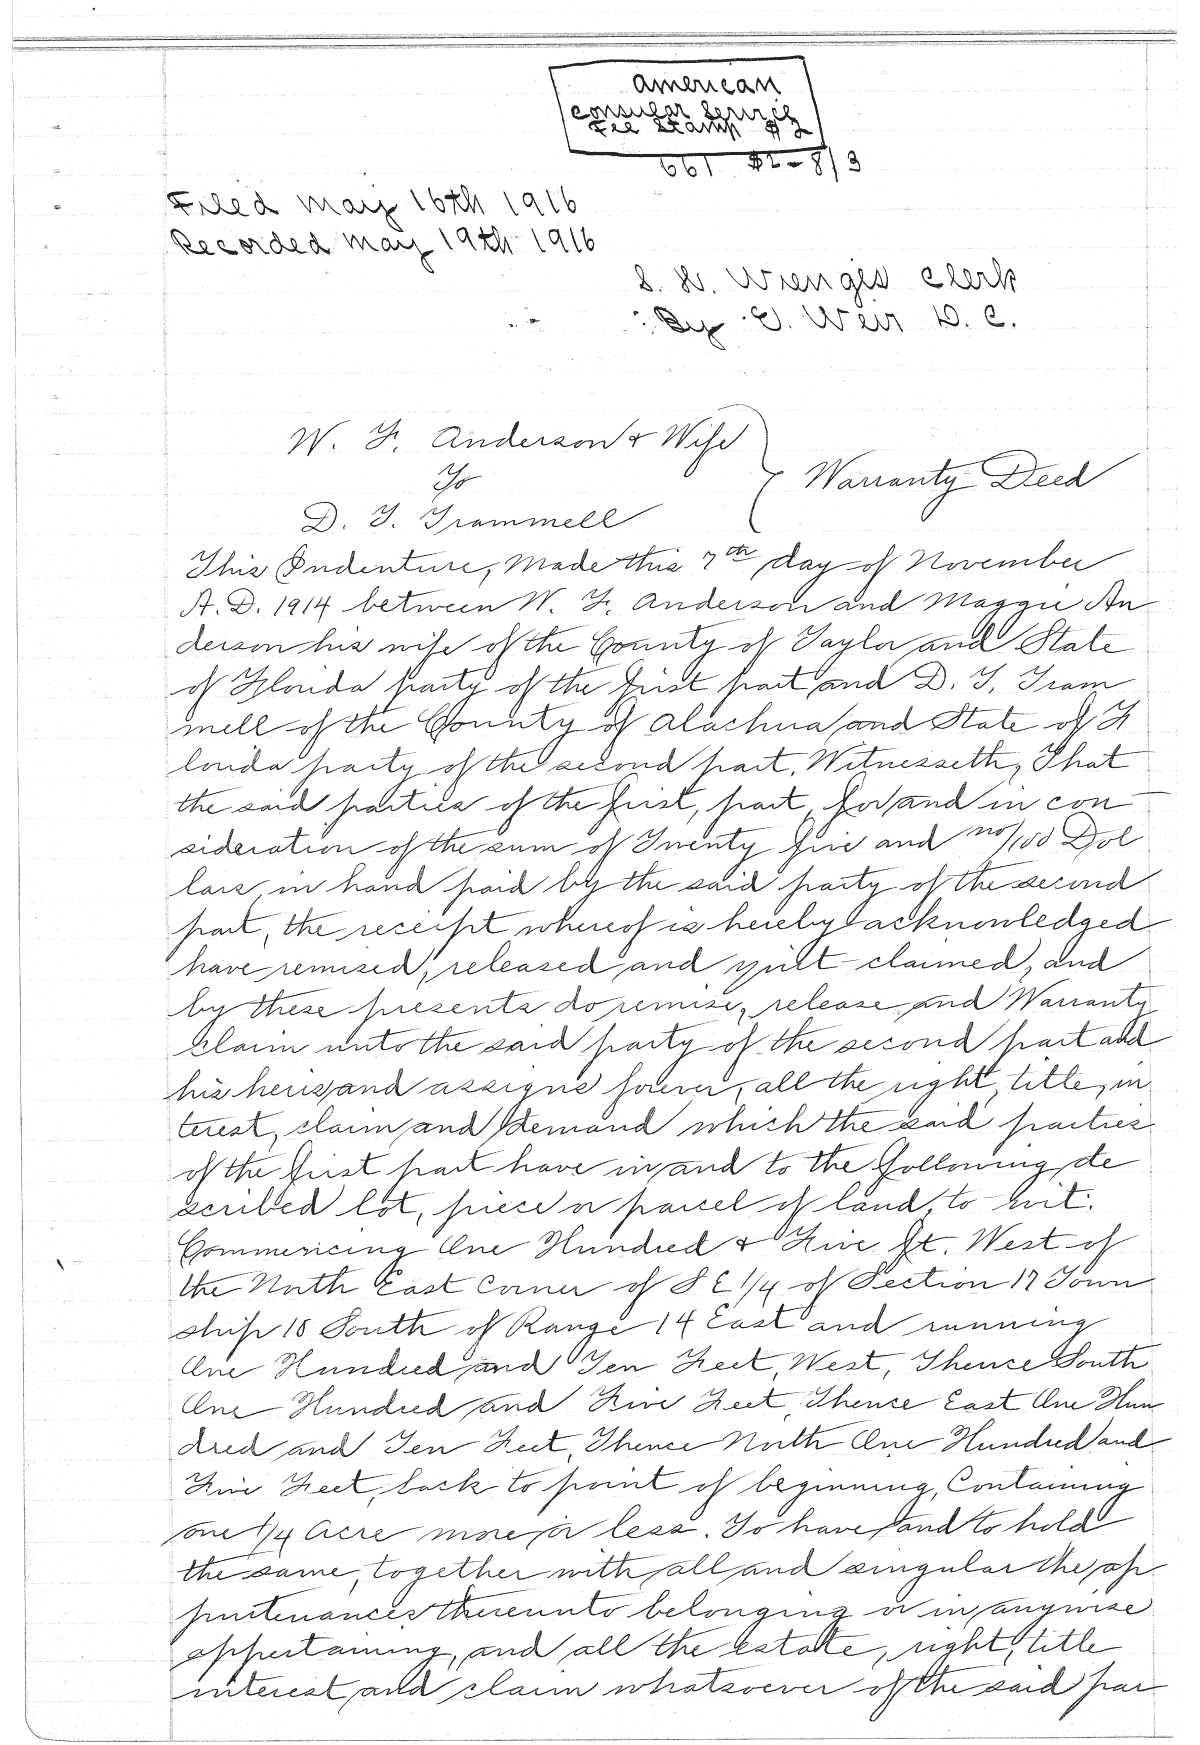 American
Consular Service
Fee Stamp $2
661 $2-8/3
Filed May 16th 1916
Recorded May 19th 1916
S. H. Wienges Clerk
By E. Weir D. C.
W. F. Anderson & Wife
To
Warranty Deed
D. T. Trammell
This Indenture, Made this 7th day of November
A. D. 1914 between W. F. Anderson and Maggie An
derson his wife of the County of Taylor and State
of Florida party of the first part and D. T. Tram
mell of the County of Alachua and State of F
lorida party of the second part, Witnesseth, That
the said parties of the first, part, for and in con
sideration of the sum of Twenty five and no/100 Dol
lars, in hand paid by the said party of the second
part, the receipt whereof is hereby acknowledged
have remised, released and quit-claimed, and
by these presents do remise, release and Warranty
claim unto the said party of the second part and
his heirs and assigns forever, all the right, title, in
terest, claim and demand which the said parties
of the first part have in and to the following de
scribed lot, piece or parcel of land, to-wit:
Commencing One Hundred & Five ft. West of
the North East Corner of S E 1/4 of Section 17 Town
ship 10 South of Range 14 East and running
One Hundred and Ten Feet, West, Thence South
One Hundred and Five Feet, Thence East One Hun
dred and Ten Feet, Thence North One Hundred and
Five Feet, back to point of beginning, Containing
one 1/4 Acre more or less. To have and to hold
the same, together with all and singular the ap
purtenances thereunto belonging or in anywise
appertaining, and all the estate, right, title
interest and claim whatsoever of the said par